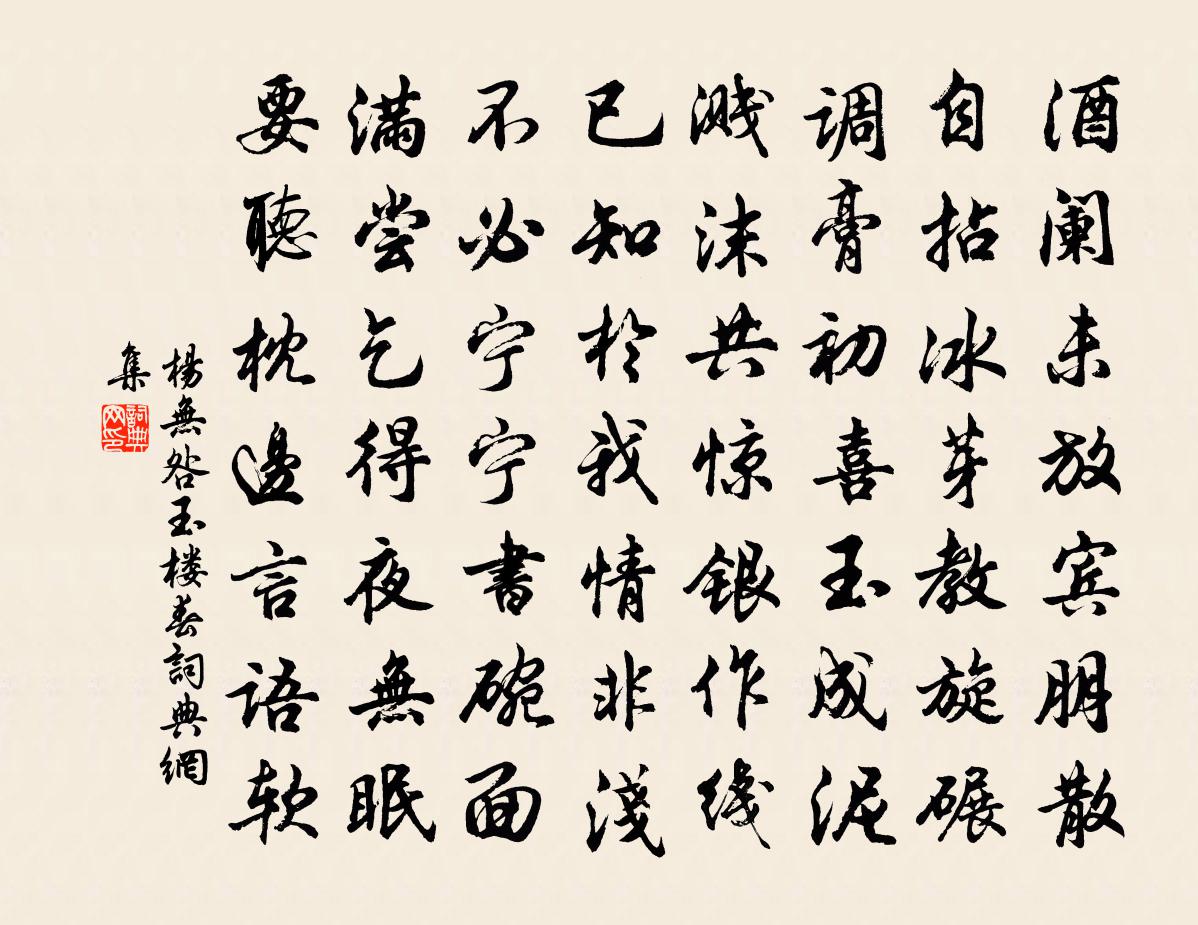 酒阑未放宾朋散
自拈冰芽教旋碾
调膏初喜玉成泥
溅沫共惊银作线
已知於我情非浅
不必宁宁书碗面
满尝乞得夜無眠
要聽枕邊言语软
楊無咎玉楼春詞典網
集
詞典网印